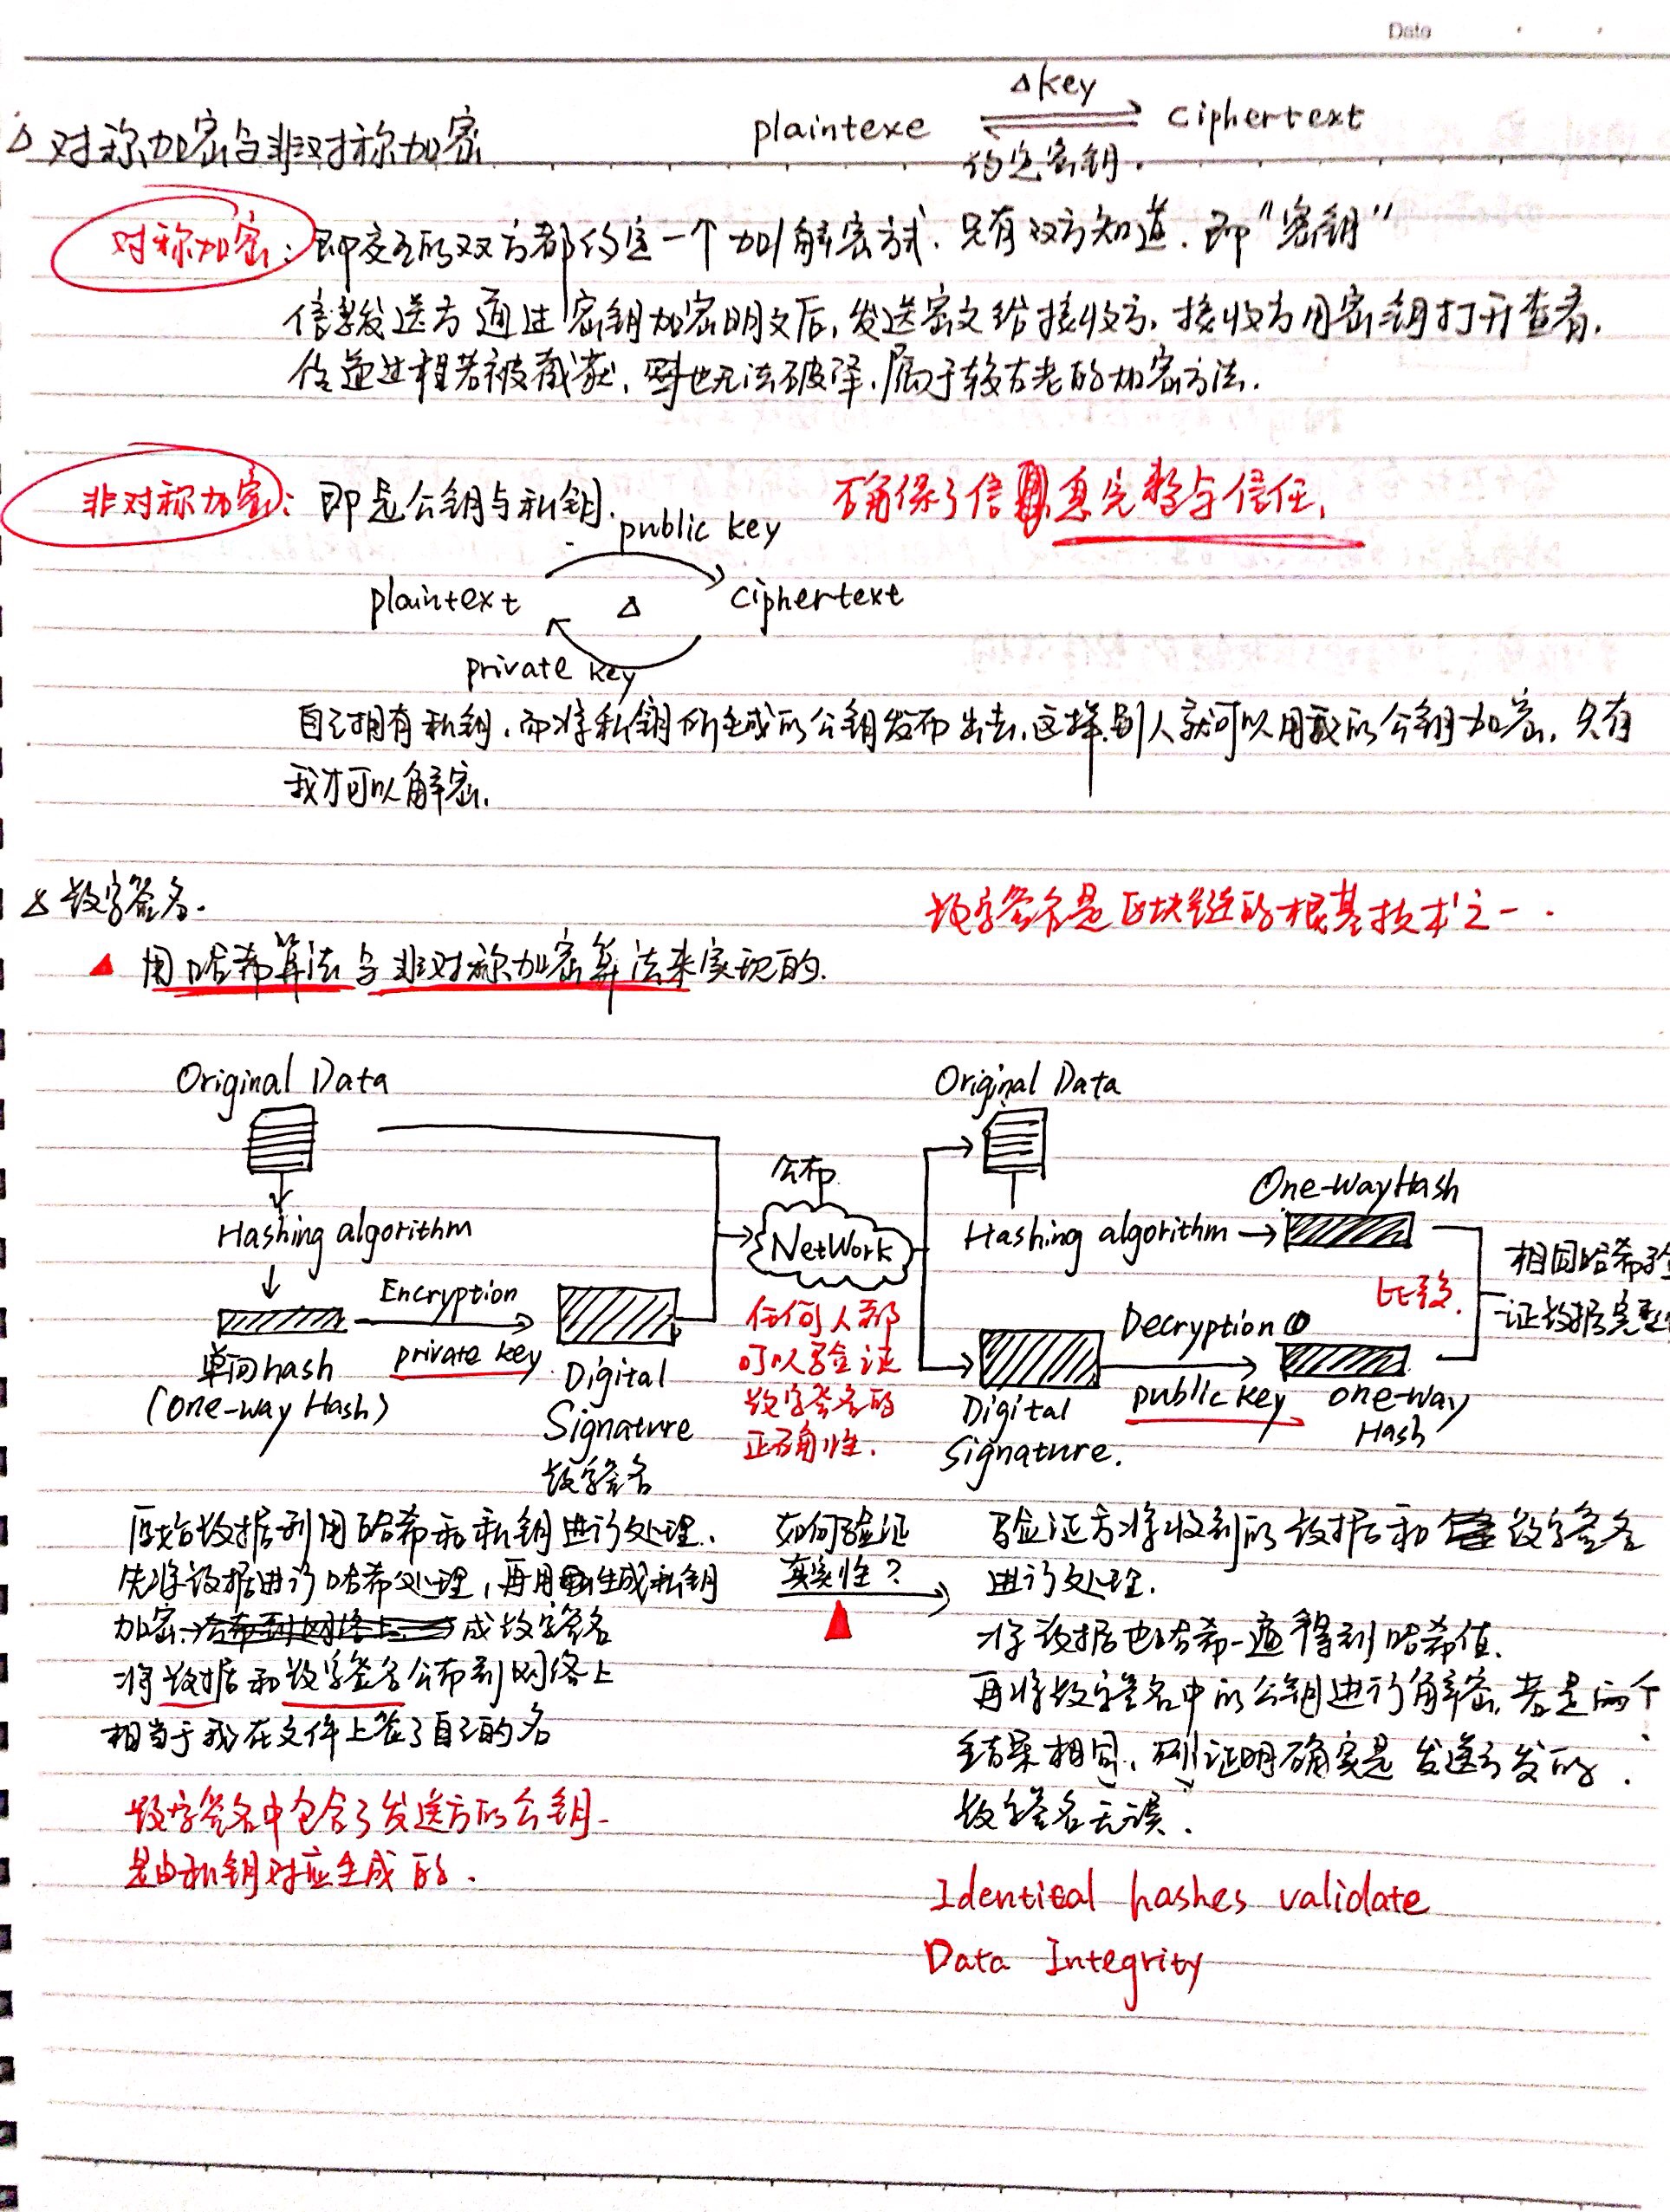 Date
Δkey
plaintexe ciphertext
Δ 对称加密与非对称加密
约定密钥.
对称加密: 即交互的双方都约定一个加/解密方式. 只有双方知道. 即"密钥"
信息发送方通过密钥加密明文后, 发送密文给接收方. 接收方用密钥打开查看.
传递过程若被截获, 也无法破译. 属于较古老的加密方法.
非对称加密: 即是公钥与私钥. 确保了信息完整与信任.
public key
plaintext Δ ciphertext
private key
自己拥有私钥. 而将私钥所生成的公钥发布出去. 这样别人就可以用我的公钥加密. 只有
我才可以解密.
Δ 数字签名.
数字签名是区块链的根基技术之一.
用哈希算法与非对称加密算法来实现的.
Original Data
Hashing algorithm
Encryption
private key
单向hash
(One-way Hash)
Digital
Signature
数字签名
公布
NetWork
任何人都
可以验证
数字签名的
正确性.
Original Data
Hashing algorithm
One-Way Hash
Decryption
public key
Digital
Signature.
one-way
Hash
比较.
相同哈希验
证数据完整
原始数据利用哈希和私钥进行处理.
先将数据进行哈希处理, 再用生成私钥
加密→成数字签名
将数据和数字签名公布到网络上
相当于我在文件上签了自己的名
数字签名中包含了发送方的公钥-
是由私钥对应生成的.
如何验证
真实性?
验证方将收到的数据和数字签名
进行处理.
将数据也哈希一遍得到哈希值.
再将数字签名中的公钥进行解密. 若是两个
结果相同, 则证明确实是发送方发的.
数字签名无误.
Identical hashes validate
Data Integrity